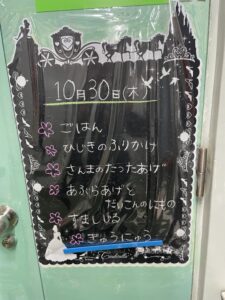 10月30日(木)
ごはん
ひじきのふりかけ
さんまのたつたあげ
あぶらあげと
だいこんのにもの
すましじる
ぎゅうにゅう
Cinderella